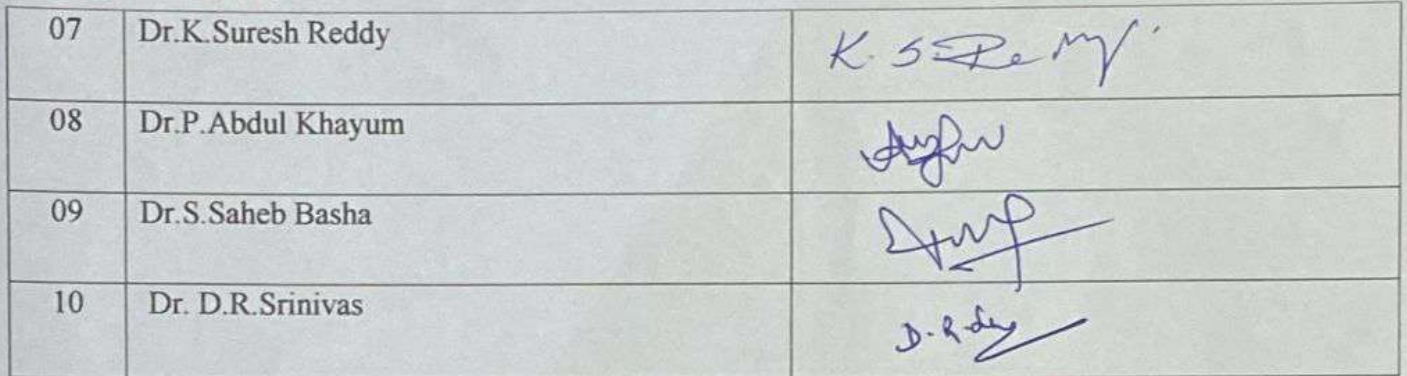 07 Dr.K.Suresh Reddy K.S.Reddy
08 Dr.P.Abdul Khayum
09 Dr.S.Saheb Basha
10 Dr. D.R.Srinivas D.R.